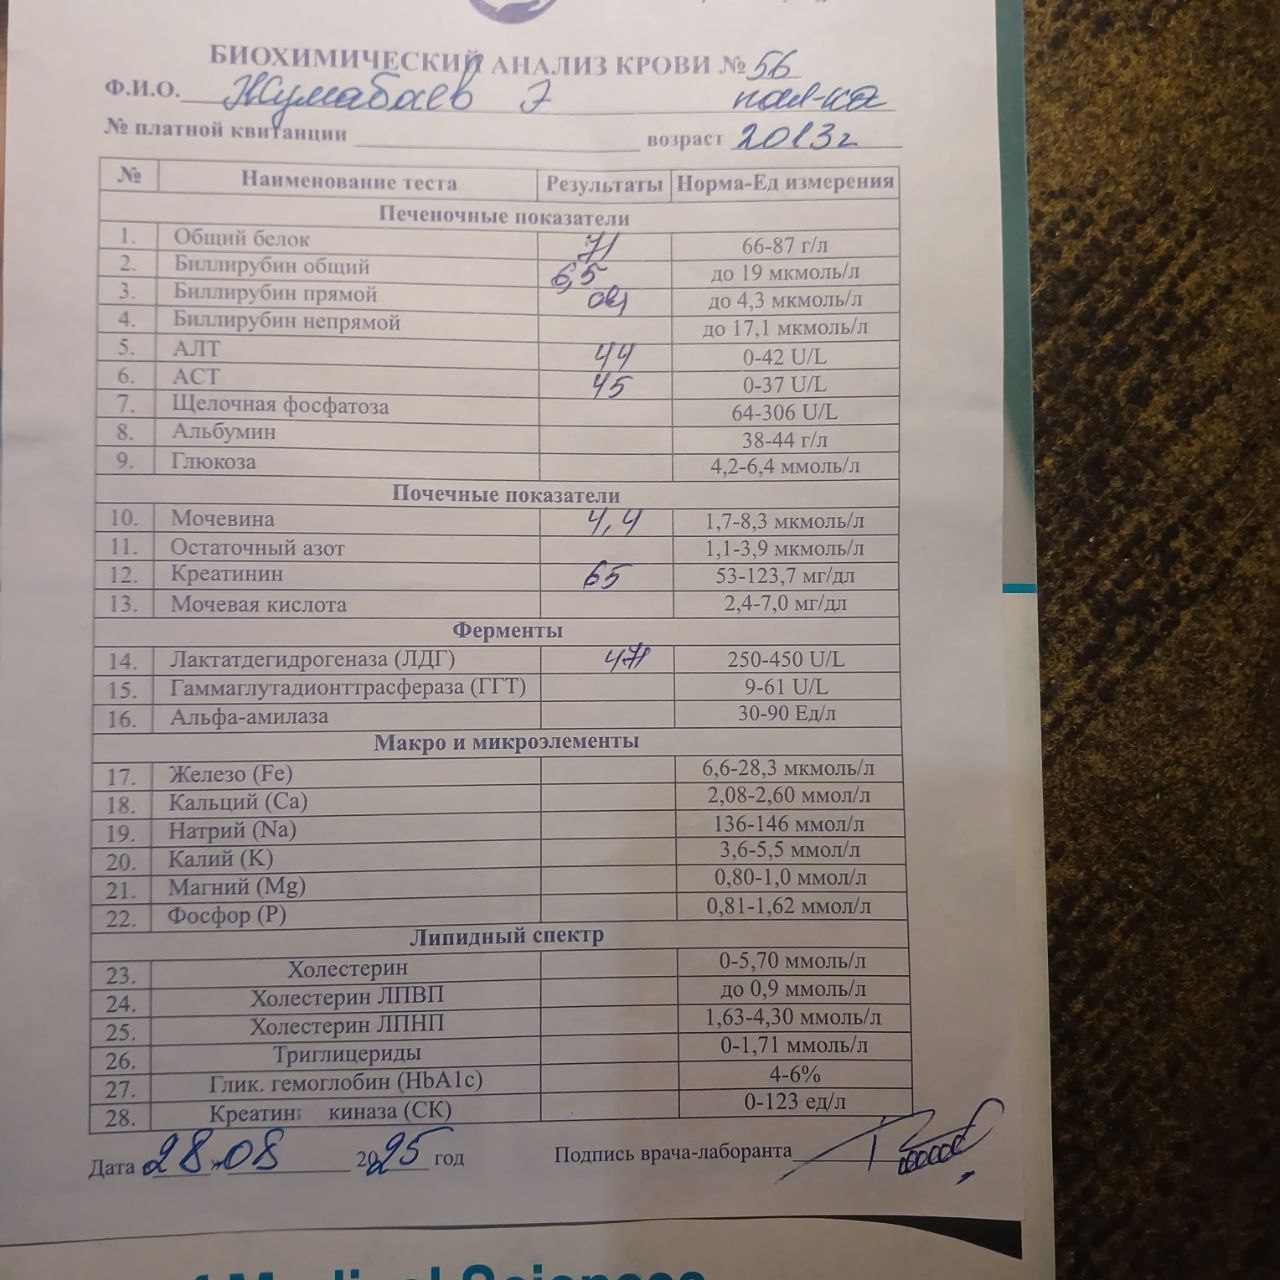 БИОХИМИЧЕСКИЙ АНАЛИЗ КРОВИ № 56
Ф.И.О. Жумабаев Э пол-ка
№ платной квитанции возраст 2013г
№ Наименование теста Результаты Норма-Ед измерения
Печеночные показатели
1. Общий белок 71 66-87 г/л
2. Биллирубин общий 6,5 до 19 мкмоль/л
3. Биллирубин прямой до 4,3 мкмоль/л
4. Биллирубин непрямой до 17,1 мкмоль/л
5. АЛТ 44 0-42 U/L
6. АСТ 45 0-37 U/L
7. Щелочная фосфатоза 64-306 U/L
8. Альбумин 38-44 г/л
9. Глюкоза 4,2-6,4 ммоль/л
Почечные показатели
10. Мочевина 4,4 1,7-8,3 мкмоль/л
11. Остаточный азот 1,1-3,9 мкмоль/л
12. Креатинин 65 53-123,7 мг/дл
13. Мочевая кислота 2,4-7,0 мг/дл
Ферменты
14. Лактатдегидрогеназа (ЛДГ) 471 250-450 U/L
15. Гаммаглутадионттрасфераза (ГГТ) 9-61 U/L
16. Альфа-амилаза 30-90 Ед/л
Макро и микроэлементы
17. Железо (Fe) 6,6-28,3 мкмоль/л
18. Кальций (Ca) 2,08-2,60 ммол/л
19. Натрий (Na) 136-146 ммол/л
20. Калий (K) 3,6-5,5 ммол/л
21. Магний (Mg) 0,80-1,0 ммол/л
22. Фосфор (P) 0,81-1,62 ммол/л
Липидный спектр
23. Холестерин 0-5,70 ммоль/л
24. Холестерин ЛПВП до 0,9 ммоль/л
25. Холестерин ЛПНП 1,63-4,30 ммоль/л
26. Триглицериды 0-1,71 ммоль/л
27. Глик. гемоглобин (HbA1c) 4-6%
28. Креатин киназа (СК) 0-123 ед/л
Дата 28 » 08 2025 год Подпись врача-лаборанта
of Medical Sciences